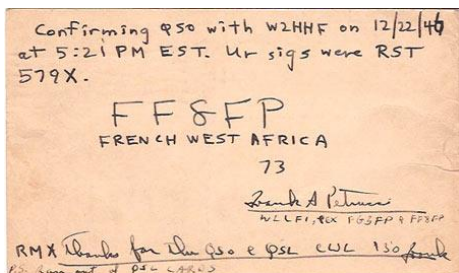 Confirming QSO with W2HHF on 12/22/46
at 5:21 PM EST. Ur sigs were RST
579X.
FF8FP
FRENCH WEST AFRICA
73
Frank A Petrucci
RMX Thanks for the QSO & QSL CUL 73 Frank
P.S. Ran out of QSL CARDS